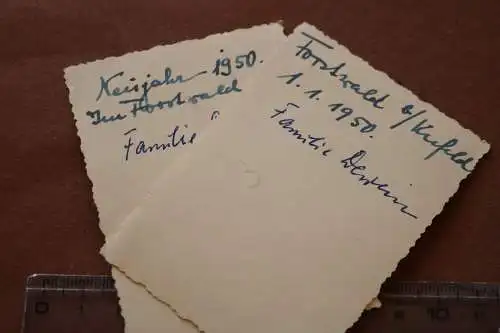 Neujahr 1950.
Im Forstwald
Familie
Forstwald b/Krefeld
1.1.1950.
Familie
0 1
10